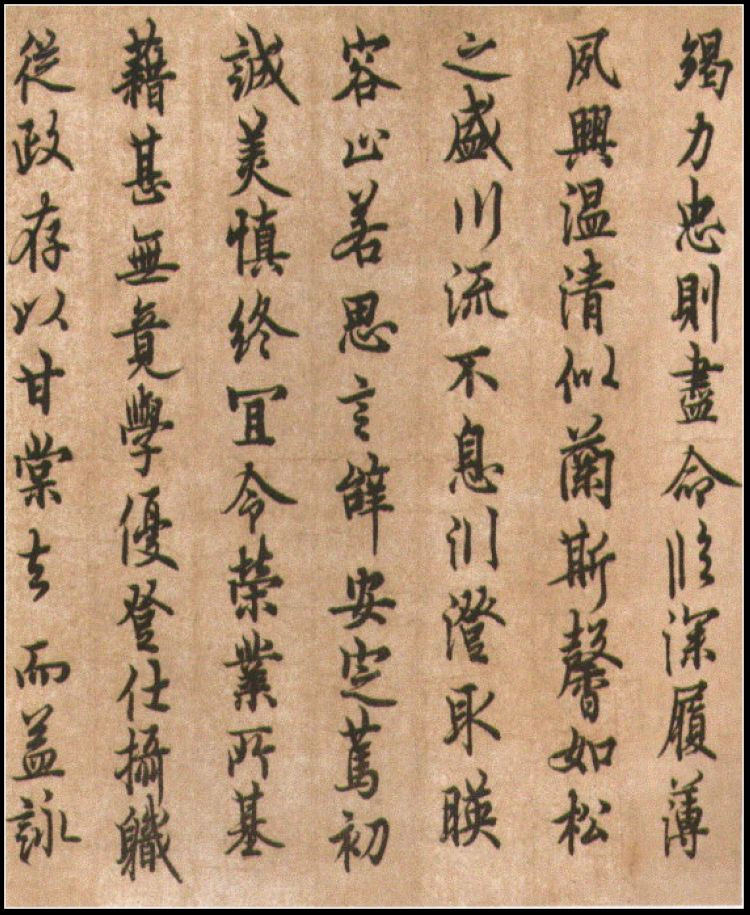 竭力忠則盡命臨深履薄
夙興温清似蘭斯馨如松
之盛川流不息淵澄取暎
容止若思言辭安定篤初
誠美慎終宜令榮業所基
藉甚無竟學優登仕攝職
從政存以甘棠去而益詠